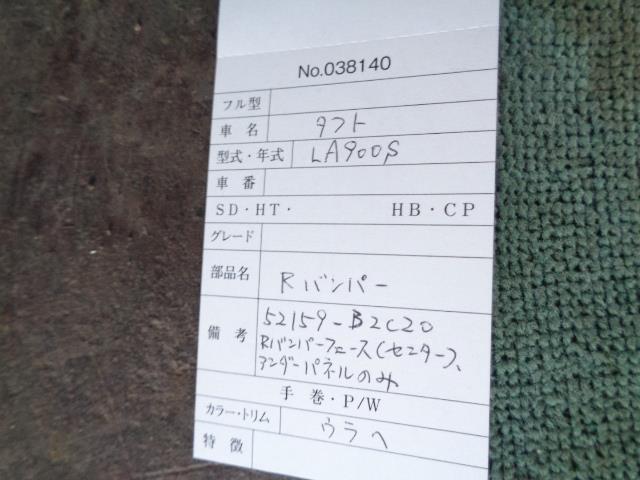 No.038140
フル型
車名 タフト
型式・年式 LA900S
車番
SD・HT・ HB・CP
グレード
部品名 Rバンパー
備考 52159-B2C20
Rバンパーフェース(センター)、
アンダーパネルのみ
手巻・P/W
カラー・トリム ウラヘ
特徴